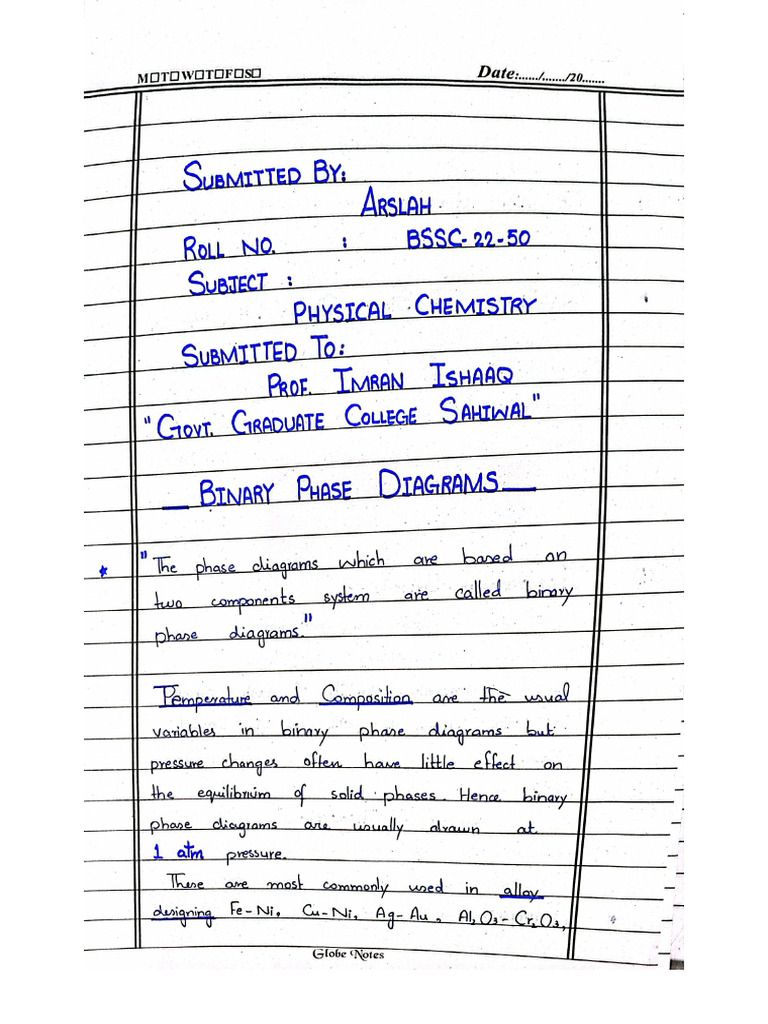 M□T□W□T□F□S□
Date:....../......./20.......
SUBMITTED BY:
ARSLAH
ROLL NO. : BSSC-22-50
SUBJECT :
PHYSICAL CHEMISTRY
SUBMITTED TO:
PROF. IMRAN ISHAAQ
"GOVT. GRADUATE COLLEGE SAHIWAL"
_ BINARY PHASE DIAGRAMS _
* "The phase diagrams which are based on
two components system are called binary
phase diagrams."
Temperature and Composition are the usual
variables in binary phase diagrams but
pressure changes often have little effect on
the equilibrium of solid phases. Hence binary
phase diagrams are usually drawn at
1 atm pressure.
These are most commonly used in alloy
designing Fe-Ni, Cu-Ni, Ag-Au, Al₂O₃-Cr₂O₃,
Globe Notes